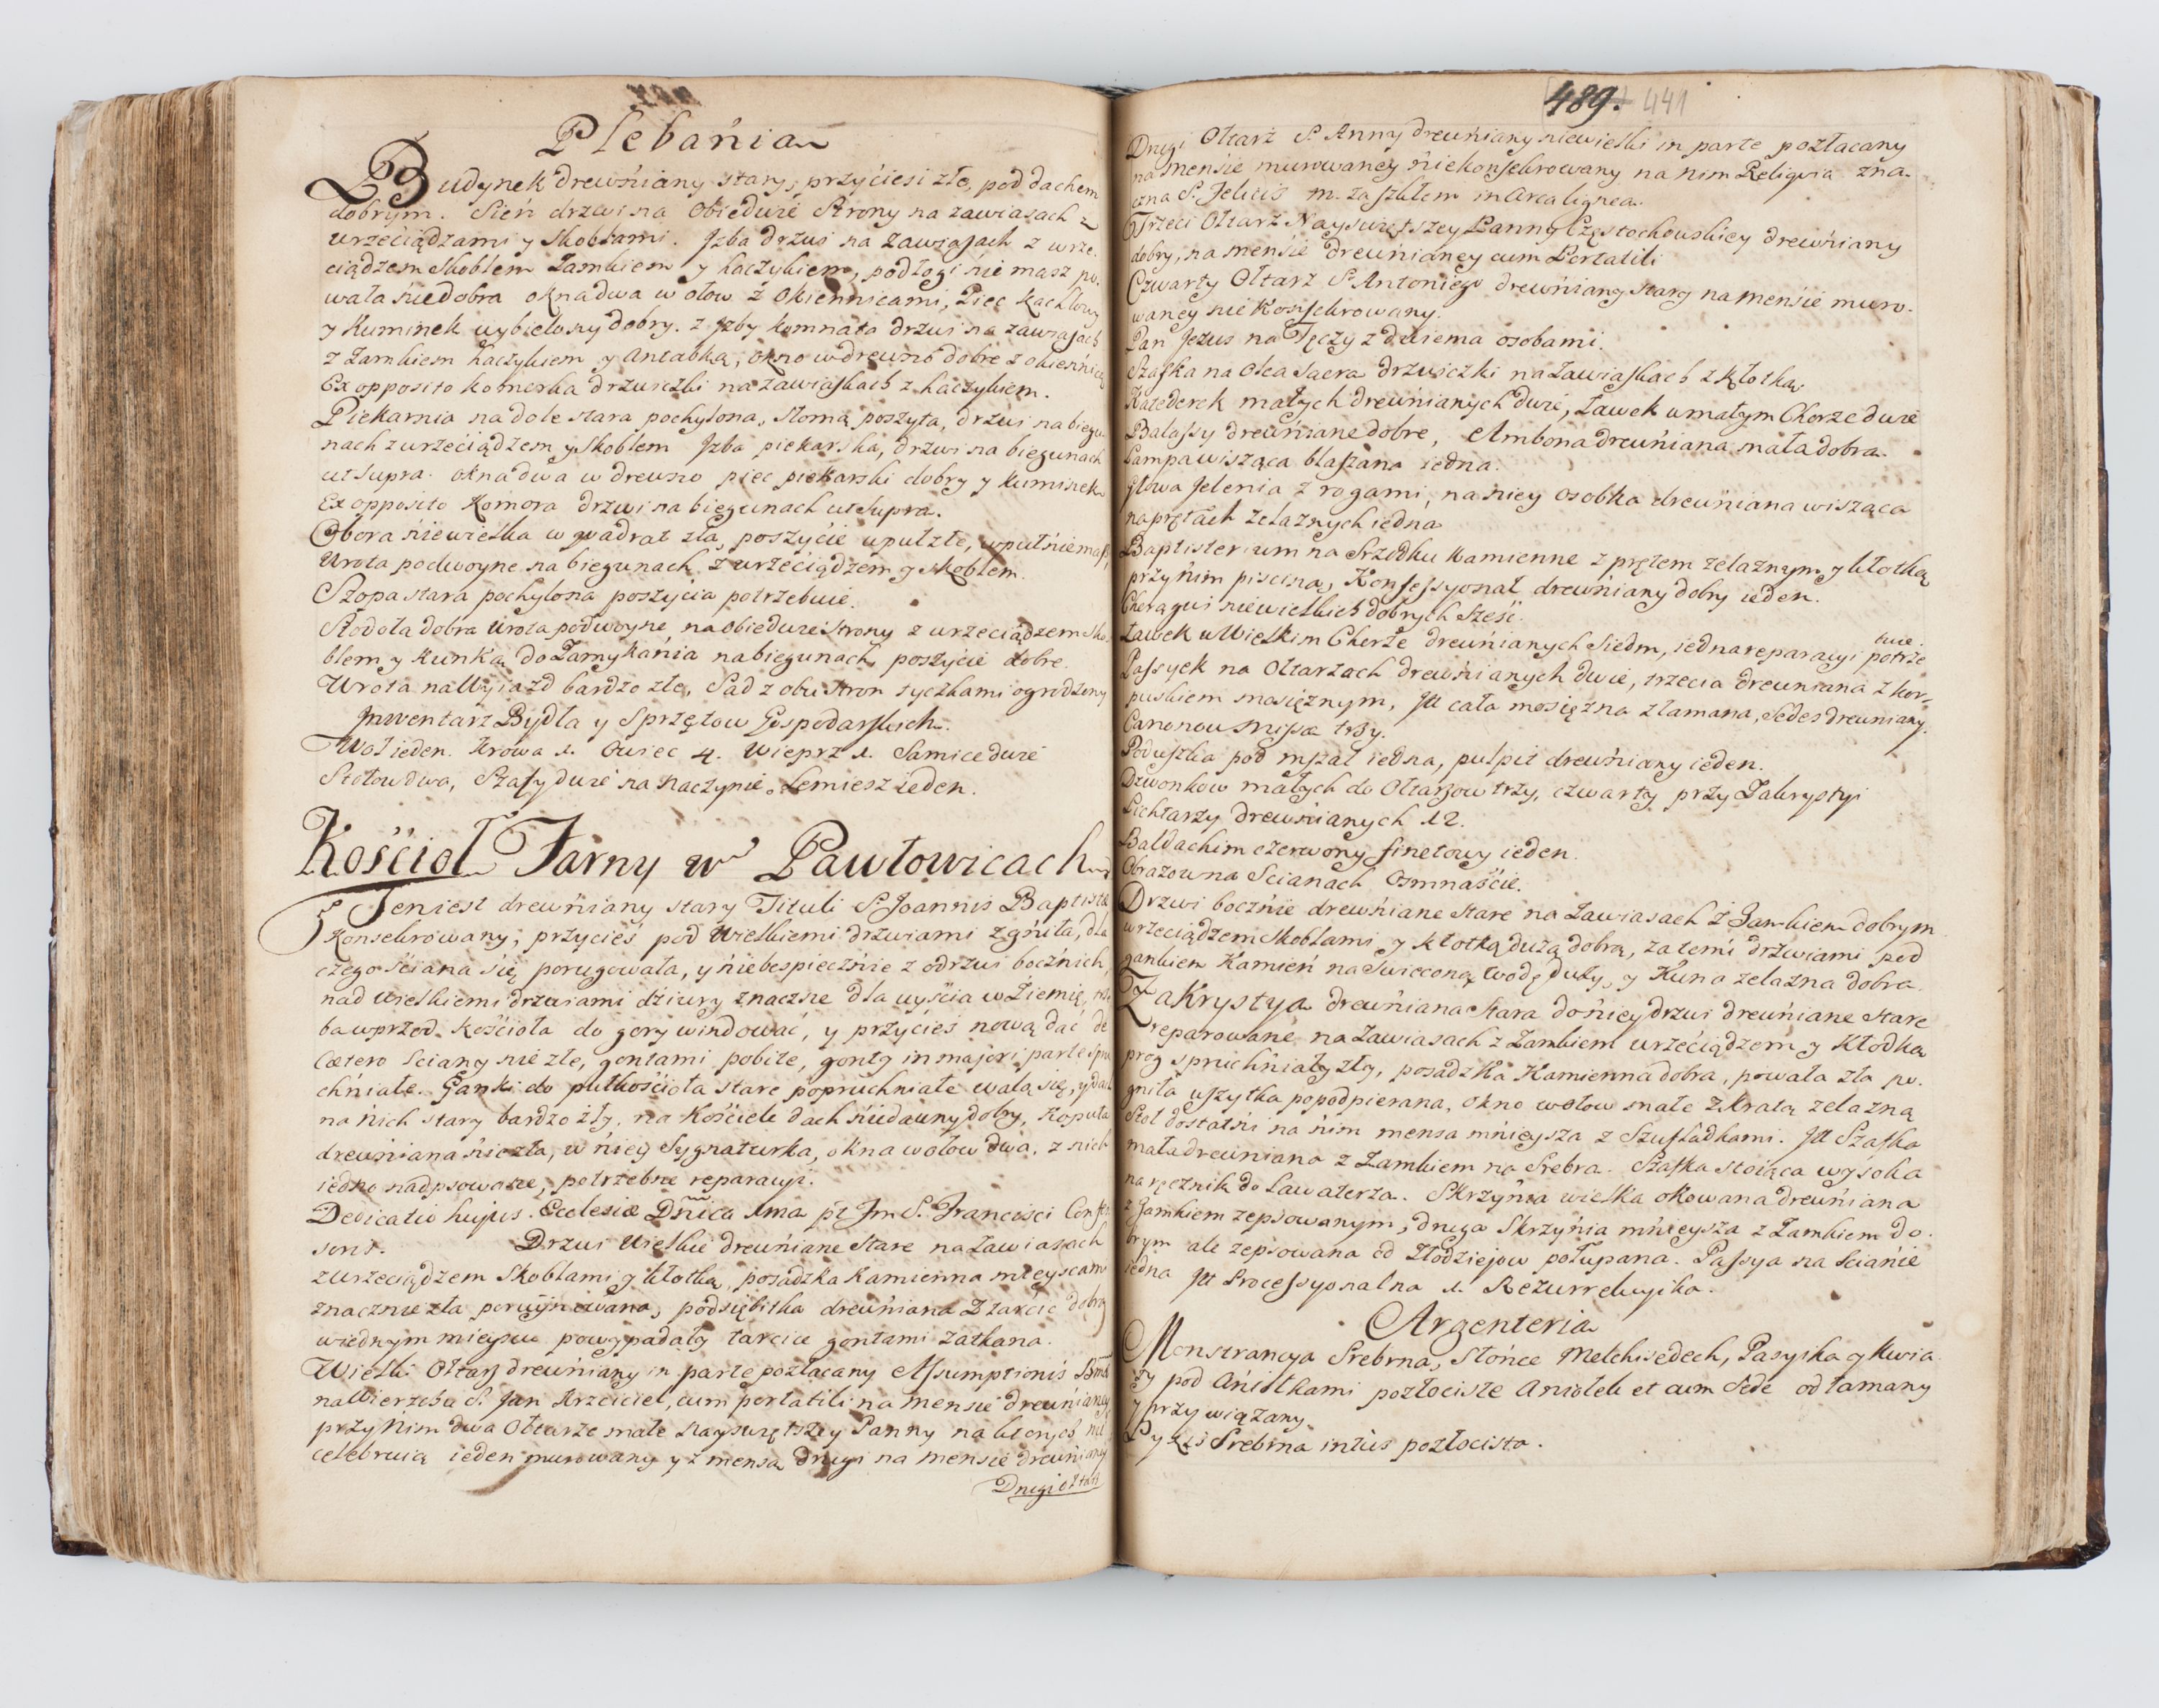 Plebańia
Budynek drewńiany stary, przyćiesi złe, pod dachem
dobrym. Sień drzwi na Obiedwie Strony na zawiasach z
wrzećiądzami y Skoblami. Jzba drzwi na zawiasach z wrze-
ciądzem Skoblem Zamkiem y haczykiem, podłogi nie masz po-
wała niedobra okna dwa w ołow z Okiennicami, Piec kachlowy
y Kuminek wybielony dobry. z Jzby komnata drzwi na zawiasach
z Zamkiem haczykiem y Antabką, okno w drewno dobre z okiennicą
Ex opposito komorka drzwiczki na zawiaskach z haczykiem.
Piekarnia na dole stara pochylona, słomą poszyta, drzwi na biegu-
nach z wrzećiądzem y Skoblem Jzba piekarska, drzwi na biegunach
ut Supra. okna dwa w drewno piec piekarski dobry y kuminek
Ex opposito Komora drzwi na biegunach ut Supra.
Obora niewielka w qwadrat zła, poszycie w puł złe, w puł niemasz,
Wrota podwoyne na biegunach z wrzećiądzem y Skoblem.
Szopa stara pochylona poszyćia potrzebuie.
Stodoła dobra Wrota podwoyne na obiedwie Strony z wrzećiądzem Sko-
blem y Kunką do Zamykańia na biegunach poszyćie dobre.
Wrota na Wyiazd bardzo złe, Sad z obu stron tyczkami ogrodzony
Jnwentarz Bydła y Sprzętow Gospodarskich.
Woł ieden. Krowa 1. Owiec 4. Wieprz 1. Samice dwie
Stołow dwa, Szafy dwie na Naczynie. Lemiesz ieden.
Kośćioł Farny w Pawłowicach
Ten iest drewńiany stary Tituli S. Joannis Baptistæ
Konsekrowany, przycieś pod Wielkiemi drzwiami zgńiła, dla
czego ściana się porugowała, y niebespiecznie z odrzwi bocznich,
nad Wielkiemi drzwiami dźiury znaczne dla uyścia w Ziemię,
ba wprzod Kościoła do gory windować, y przyćieś nową dać de
Cætero Sciany nie złe, gontami pobite, gonty in majori parte spru-
chńiałe. Ganki do puł kośćioła stare popruchniałe walą się, y dach
na ńich stary bardzo zły, na Kościele dach niedawny dobry, Kopuła
drewniana niezła, w ńiey Sygnaturka, okna w ołow dwa, z nich
iedno nadpsowane, potrzebne reparacyi.
Dedicatio hujus Ecclesiæ Dnica 1ma pt Jm S. Francisci Confes-
soris. Drzwi Wielkie drewńiane Stare na Zawiasach
z wrzećiądzem Skoblami y kłotką, posadzka Kamienna mieyscami
znacznie zła poruynowana, podsiębitka drewńiana z tarćic dobry
w iednym mieyscu powypadały tarcice gontami zatkana.
Wielki Ołtarz drewńiany in parte pozłacany Assumptionis Bmæ
na Wierzchu S. Jan Krzciciel, cum portatili na mensie drewńianey
przy Nim dwa Ołtarze małe Nayswiętszey Panny na ktorych nie
celebruią ieden murowany y z mensą drugi na mensie drewńiany
Drugi Ołtarz
489. 441
Drugi Ołtarz S. Anny drewńiany niewielki in parte pozłacany
na mensie murowaney niekonsekrowany na nim Reliqvia zna-
czna S. Felicis M. za szkłem in Arca lignea.
Trzeci Ołtarz Nayswiętszey Panny Częstochowskiey drewńiany
dobry, na mensie drewńianey cum Portatili
Czwarty Ołtarz S. Antoniego drewńiany stary na mensie muro-
waney nie Konsekrowany.
Pan Jezus na Tęczy z dwiema osobami.
Szafka na Olea Sacra drzwiczki na zawiaskach z kłotką.
Katederek małych drewnianych dwie, Ławek w małym Chorze dwie
Balassy drewńiane dobre, Ambona drewńiana mała dobra.
Lampa wisząca blaszana iedna.
Głowa Jelenia z rogami, na niey osobka drewńiana wisząca
na prętach żelaznych iedna
Baptisterium na Srzodku kamienne z prętem żelaznym y kłotką
przy nim piscina, Konfessyonał drewńiany dobry ieden.
Chorągwi niewielkich dobrych Sześć.
Ławek w Wielkim Chorze drewńianych Siedm, iedna reparacyi potrze-
buie.
Passyek na Ołtarzach drewńianych dwie, trzecia drewniana z kor-
pusikiem mosiężnym, Jtt cała mosiężna złamana, Sedes drewniany.
Canonow Missæ trzy.
Poduszka pod mszał iedna, pulpit drewńiany ieden.
Dzwonkow małych do Ołtarzow trzy, czwarty przy Zakrystyi
Lichtarzy drewńianych 12.
Baldachim czerwony finetowy ieden.
Obrazow na Scianach Osmnaście.
Drzwi bocznie drewńiane stare na Zawiasach z Zamkiem dobrym
wrzeciądzem Skoblami y kłotką dużą dobrą, za temi drzwiami pod
gankiem Kamień na Swięconą Wodę duży, y Kuna zelazna dobra.
Zakrystya drewńiana Stara do niey drzwi drewńiane Stare
reparowane, na Zawiasach z Zamkiem wrzećiądzem y Kłodką
prog spruchńiały zły, posadzka Kamienna dobra, powała zła po-
gniła wszytka popodpierana, okno w ołow małe z Kratą zelazną
Stoł dostatni na nim mensa mnieysza z Szufladkami. Jtt Szafka
mała drewniana z Zamkiem na Srebra. Szafka stoiąca wysoka
na ręcznik do Lawaterza. Skrzyńia wielka okowana drewńiana
z Zamkiem zepsowanym, druga Skrzyńia mnieysza z Zamkiem do-
brym ale zepsowana od Złodziejow połupana. Passya na Scianie
iedna Jtt Processyonalna 1. Rezurrekcyika.
Argenteria
Monstrancya Srebrna, Słońce Melchisedech, Pasyika y Kwia-
ty pod Aniołkami pozłociste Aniołek et cum Sede odłamany
y przywiązany.
Pyxis Srebrna intus pozłocista.